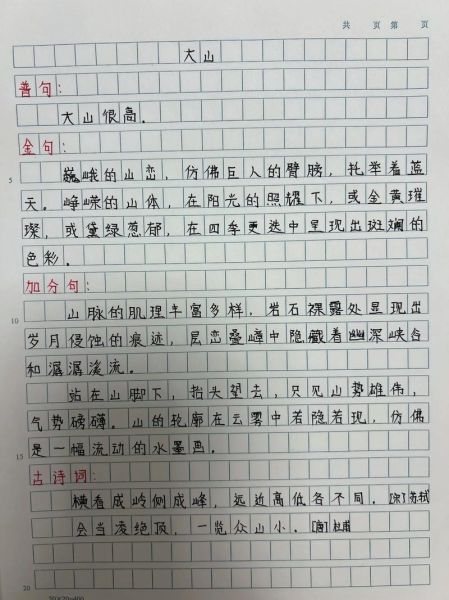 共 页 第 页
大山
普句:
大山很高.
金句:
巍峨的山峦,仿佛巨人的臂膀,托举着蓝
5
天。峥嵘的山体,在阳光的照耀下,或金黄璀
璨,或黛绿葱郁,在四季更迭中呈现出斑斓的
色彩.
加分句:
山脉的肌理丰富多样,岩石裸露处显现出
10
岁月侵蚀的痕迹,层峦叠嶂中隐藏着幽深峡谷
和潺潺溪流.
站在山脚下,抬头望去,只见山势雄伟,
气势磅礴。山的轮廓在云雾中若隐若现,仿佛
是一幅流动的水墨画.
15
古诗词:
横看成岭侧成峰,远近高低各不同.[宋]苏轼
会当凌绝顶,一览众山小.[唐]杜甫
20
20×20=400